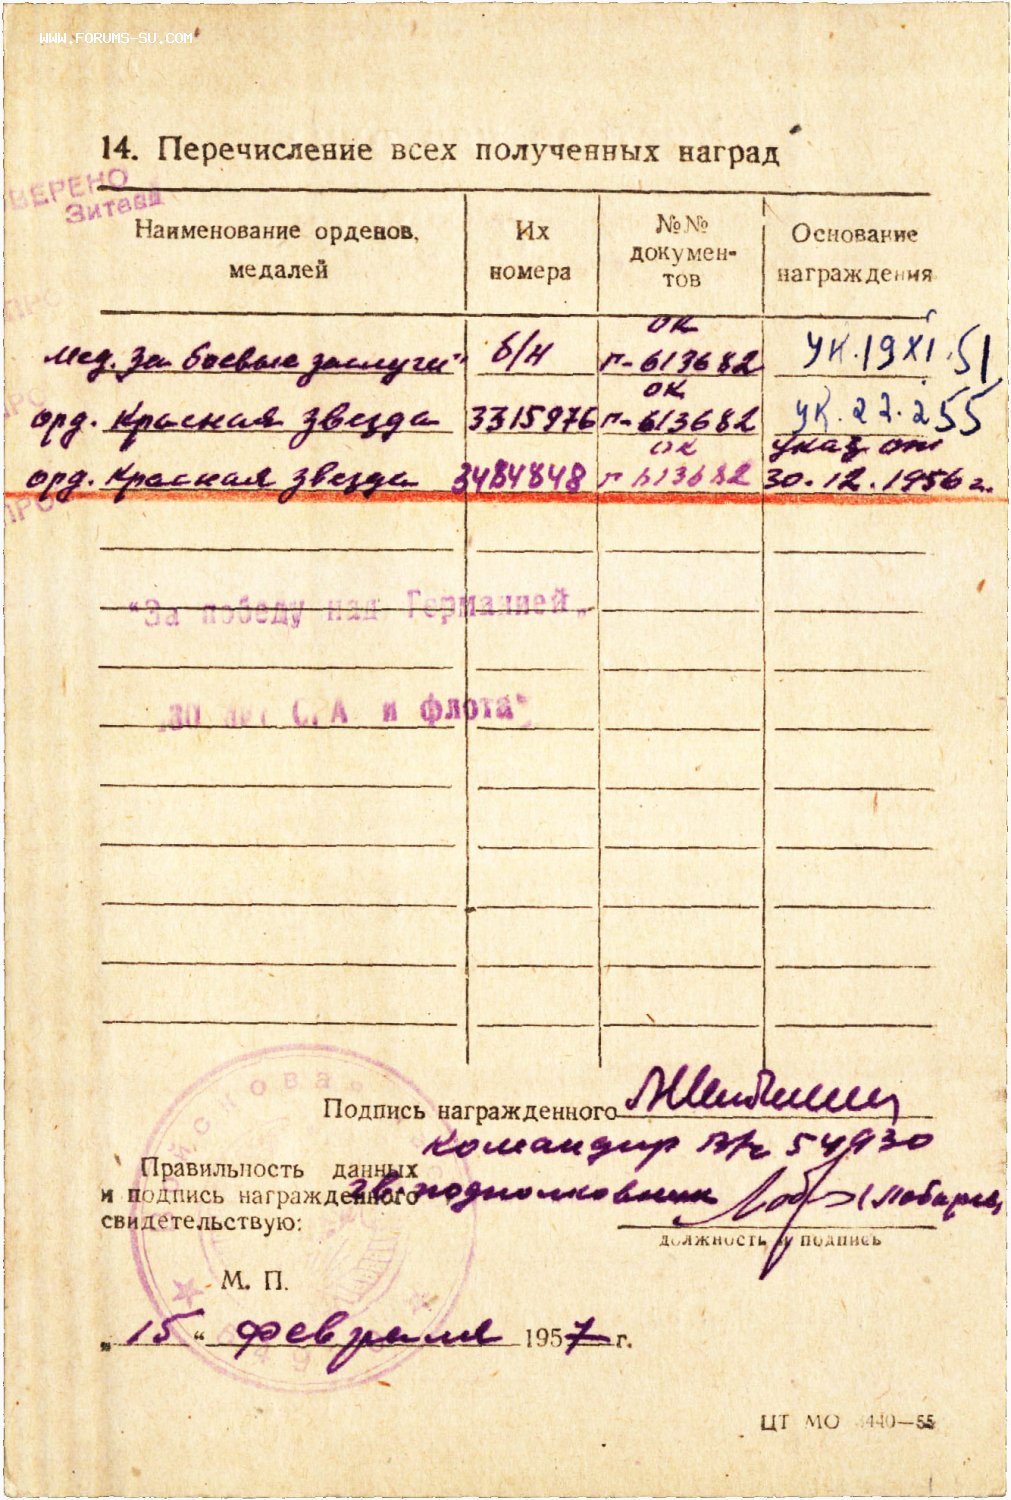 WWW.FORUMS-SU.COM
14. Перечисление всех полученных наград
ВЕРЕНО
Зитева
Наименование орденов, медалей
Их номера
№№ докумен- тов
Основание награждения
Мед. За боевые заслуги" б/н ОК г-613682 УК.19 XI.51
орд. Красная звезда 3315976 ОК г-613682 УК.22.2 55
орд. Красная звезда 3484848 ОК г 613682 указ от 30.12.1956 г.
"За победу над Германией„
„30 лет С.А и флота"
Подпись награжденного
Командир в/ч 54930
Правильность данных
и подпись награжденного гв. подполковник
свидетельствую:
должность и подпись
М. П.
„15" февраля 1957 г.
ЦТ МО 440—55